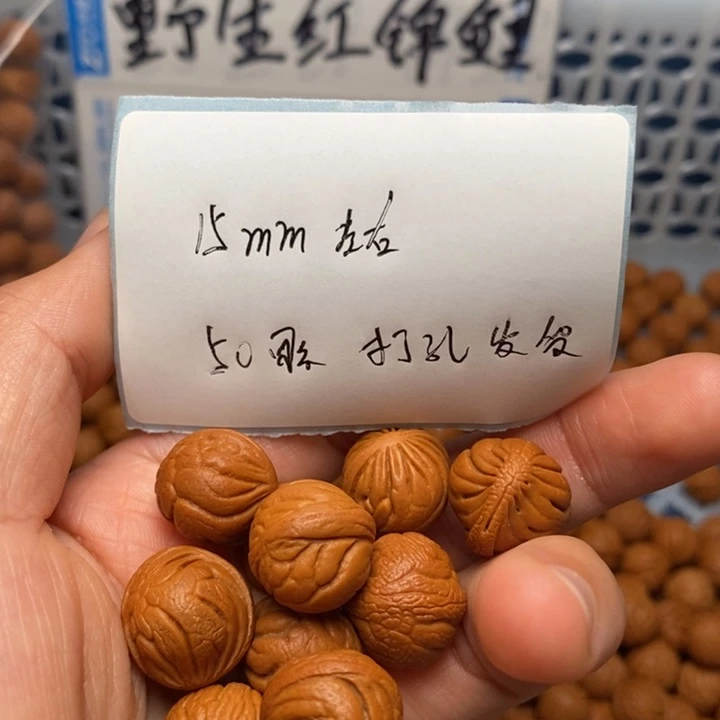 野生红锦鲤
15mm 左右
50颗 打孔发货